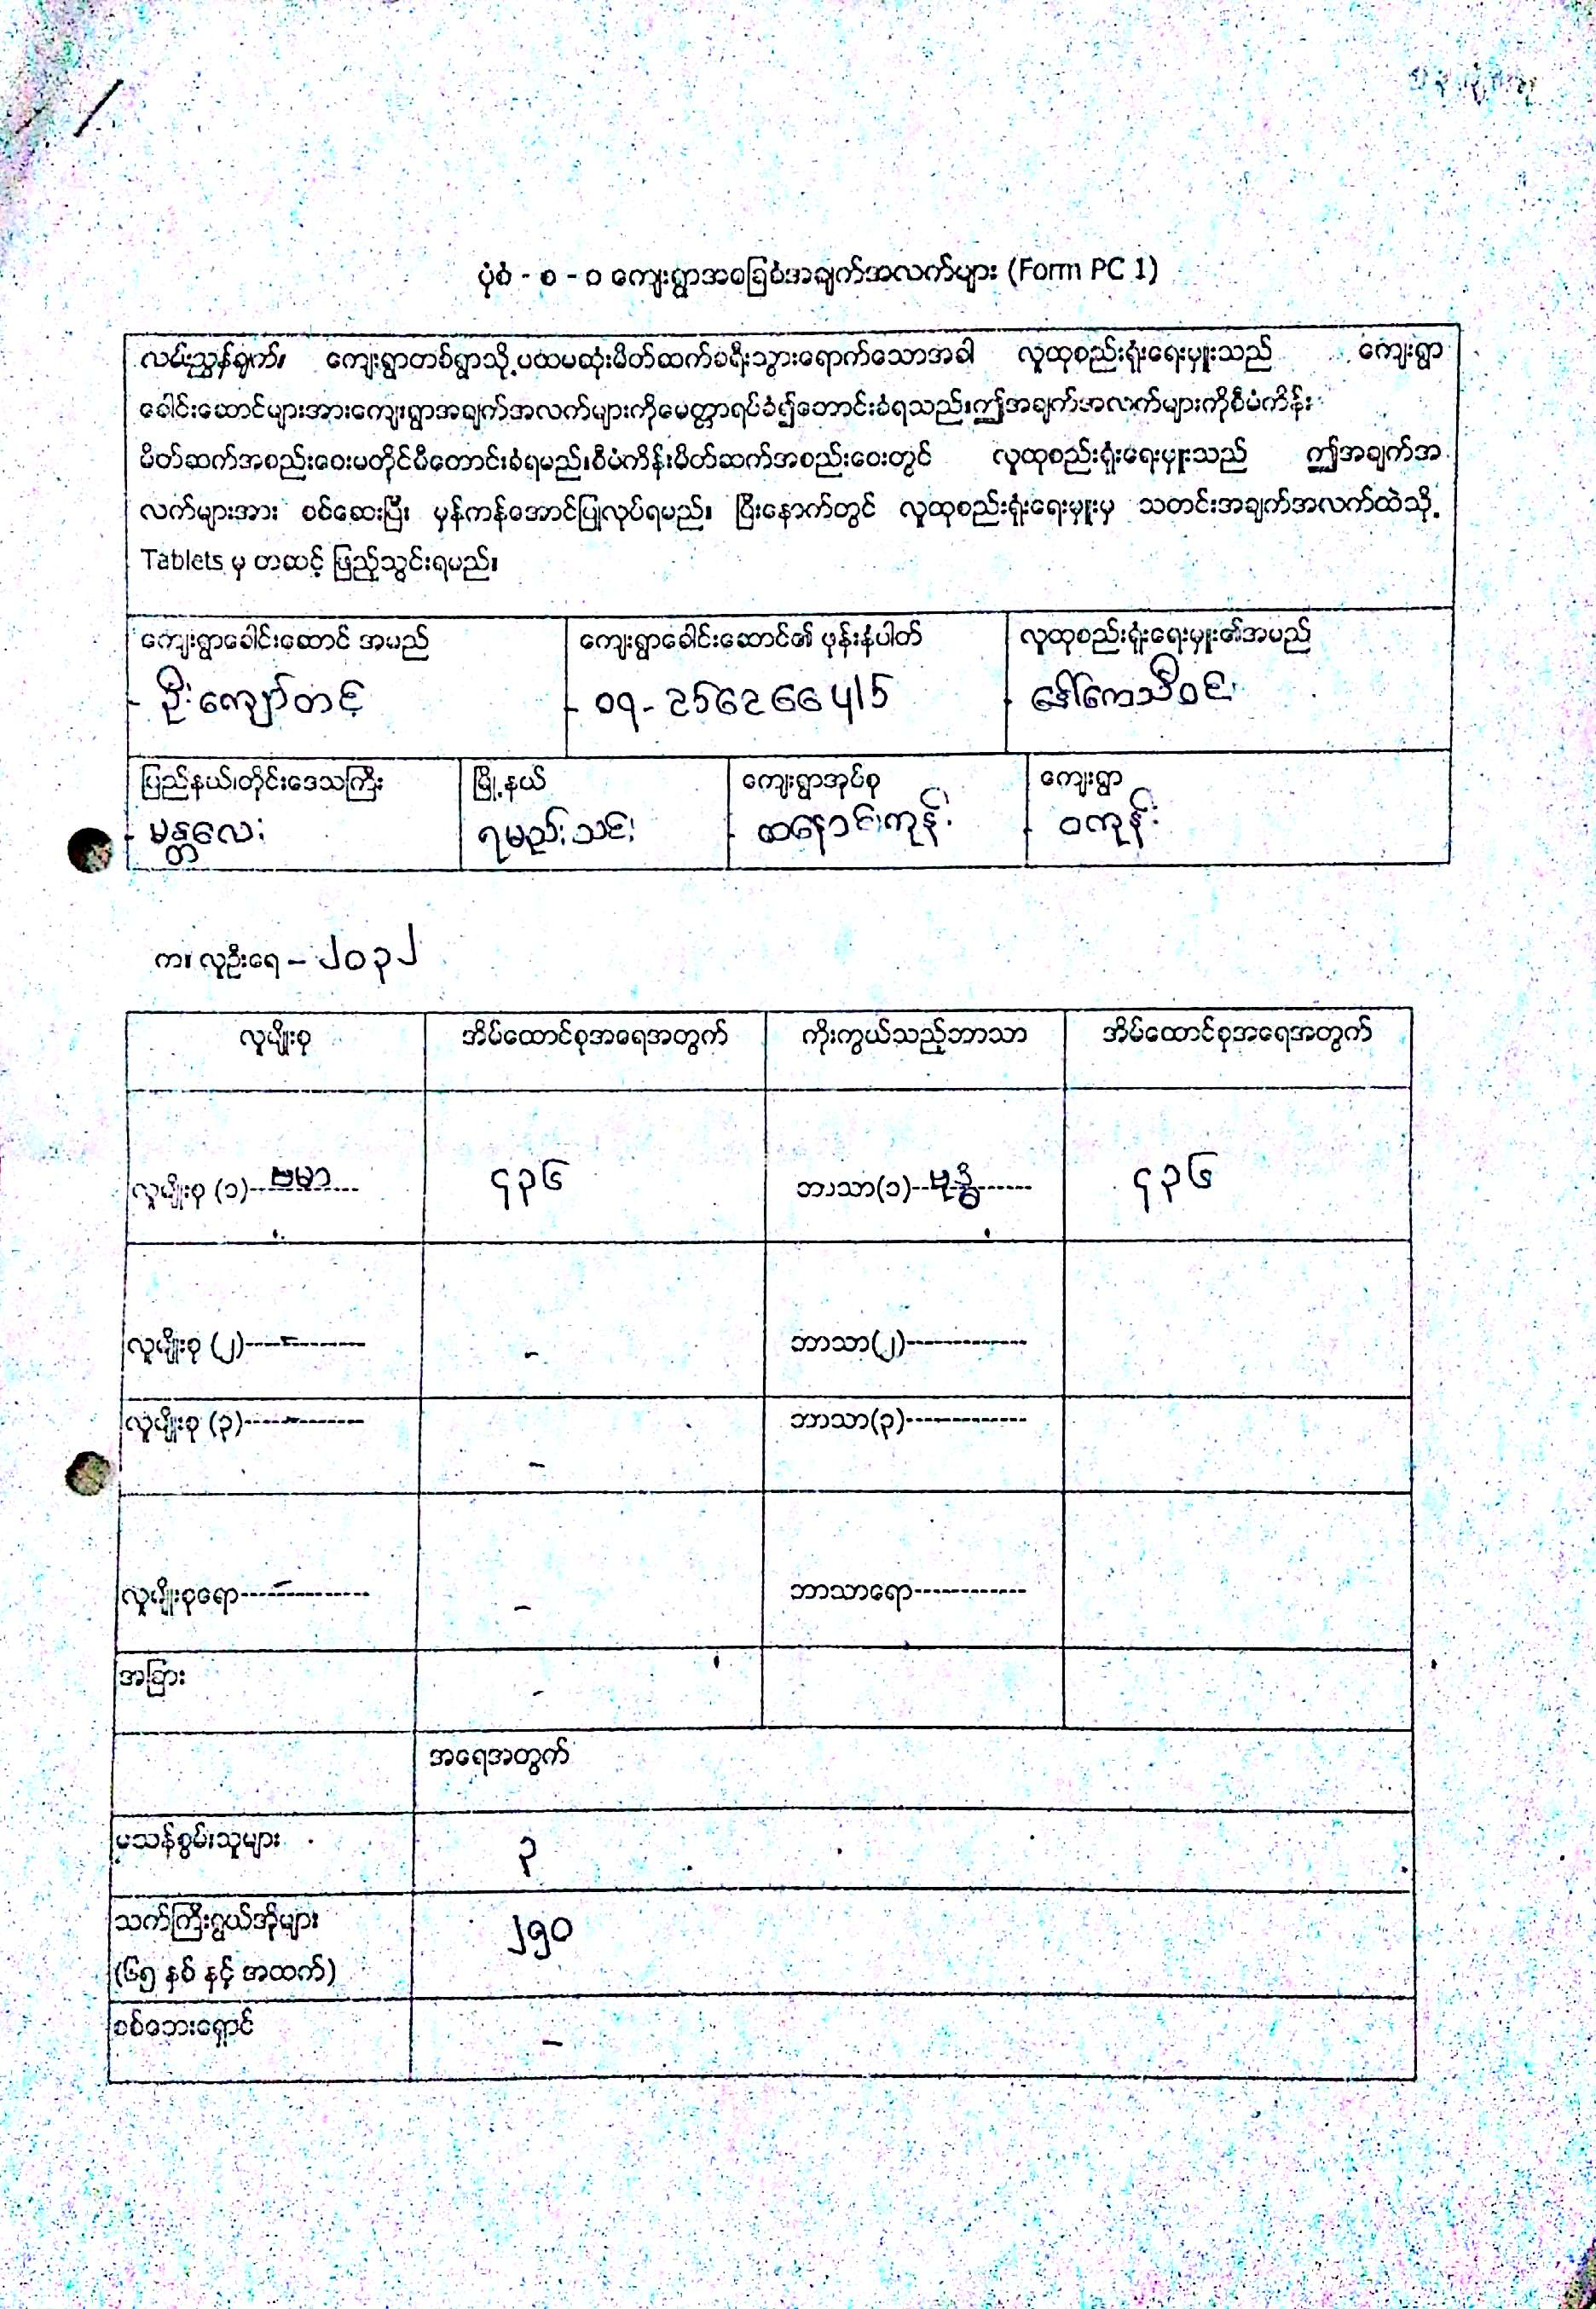 ပုံစံ - စ - ၁ ကျေးရွာအခြေခံအချက်အလက်များ (Form PC 1)
လမ်းညွှန်ချက်။ ကျေးရွာတစ်ရွာသို့ပထမဆုံးမိတ်ဆက်ခရီးသွားရောက်သောအခါ လူထုစည်းရုံးရေးမှူးသည် ကျေးရွာ
ခေါင်းဆောင်များအားကျေးရွာအချက်အလက်များကိုမေတ္တာရပ်ခံ၍တောင်းခံရသည်။ဤအချက်အလက်များကိုစီမံကိန်း
မိတ်ဆက်အစည်းဝေးမတိုင်မီတောင်းခံရမည်။စီမံကိန်းမိတ်ဆက်အစည်းဝေးတွင် လူထုစည်းရုံးရေးမှူးသည် ဤအချက်အ
လက်များအား စစ်ဆေးပြီး မှန်ကန်အောင်ပြုလုပ်ရမည်။ ပြီးနောက်တွင် လူထုစည်းရုံးရေးမှူးမှ သတင်းအချက်အလက်ထဲသို့
Tablets မှ တဆင့် ဖြည့်သွင်းရမည်။
ကျေးရွာခေါင်းဆောင် အမည် ကျေးရွာခေါင်းဆောင်၏ ဖုန်းနံပါတ် လူထုစည်းရုံးရေးမှူး၏အမည်
- ဦးကျော်တင့် - ဒေါ်ကေသီဝင်း
ပြည်နယ်/တိုင်းဒေသကြီး မြို့နယ် ကျေးရွာအုပ်စု ကျေးရွာ
- မန္တလေး ရမည်းသင်း - ထနောင်းကုန်း - ဝကုန်း
က။ လူဦးရေ - ၂၀၃၂
လူမျိုးစု အိမ်ထောင်စုအရေအတွက် ကိုးကွယ်သည့်ဘာသာ အိမ်ထောင်စုအရေအတွက်
လူမျိုးစု (၁)---ဗမာ--- ၄၃၆ ဘာသာ(၁)---ဗုဒ္ဓ--- ၄၃၆
လူမျိုးစု (၂)------------- - ဘာသာ(၂)-------------
လူမျိုးစု (၃)------------- - ဘာသာ(၃)-------------
လူမျိုးစုရော-------------- - ဘာသာရော------------
အခြား -
အရေအတွက်
မသန်စွမ်းသူများ ၃
သက်ကြီးရွယ်အိုများ ၂၅၀
(၆၅ နှစ် နှင့် အထက်)
စစ်ဘေးရှောင် -